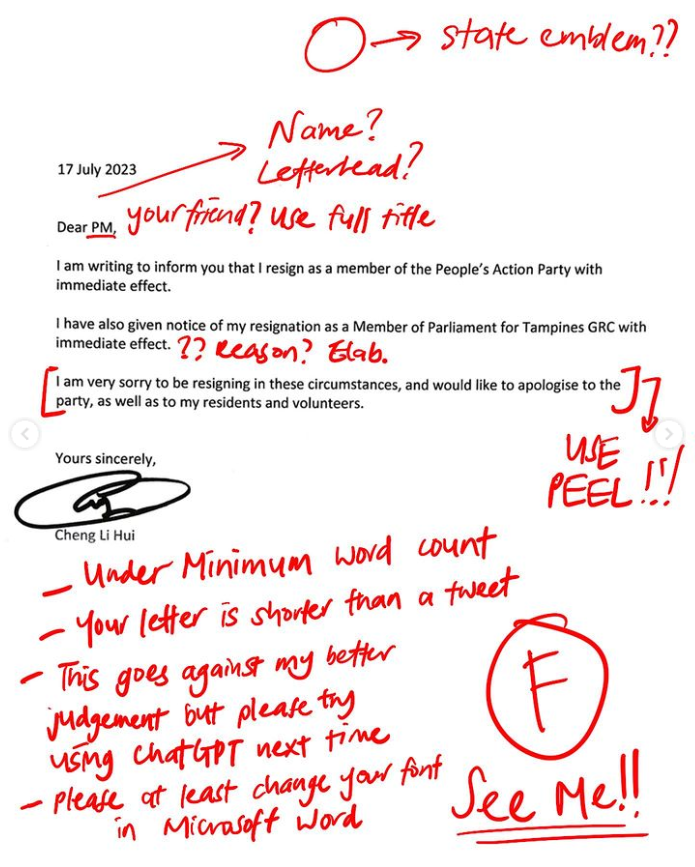 state emblem??
Name?
Letterhead?
17 July 2023
Dear PM, your friend? Use full title
I am writing to inform you that I resign as a member of the People's Action Party with
immediate effect.
I have also given notice of my resignation as a Member of Parliament for Tampines GRC with
immediate effect. ?? Reason? Elab.
I am very sorry to be resigning in these circumstances, and would like to apologise to the
party, as well as to my residents and volunteers.
USE
PEEL!!!
Yours sincerely,
Cheng Li Hui
- Under Minimum word count
- Your letter is shorter than a tweet
- This goes against my better
judgement but please try
using ChatGPT next time
- please at least change your font
in Microsoft Word
F
See Me!!